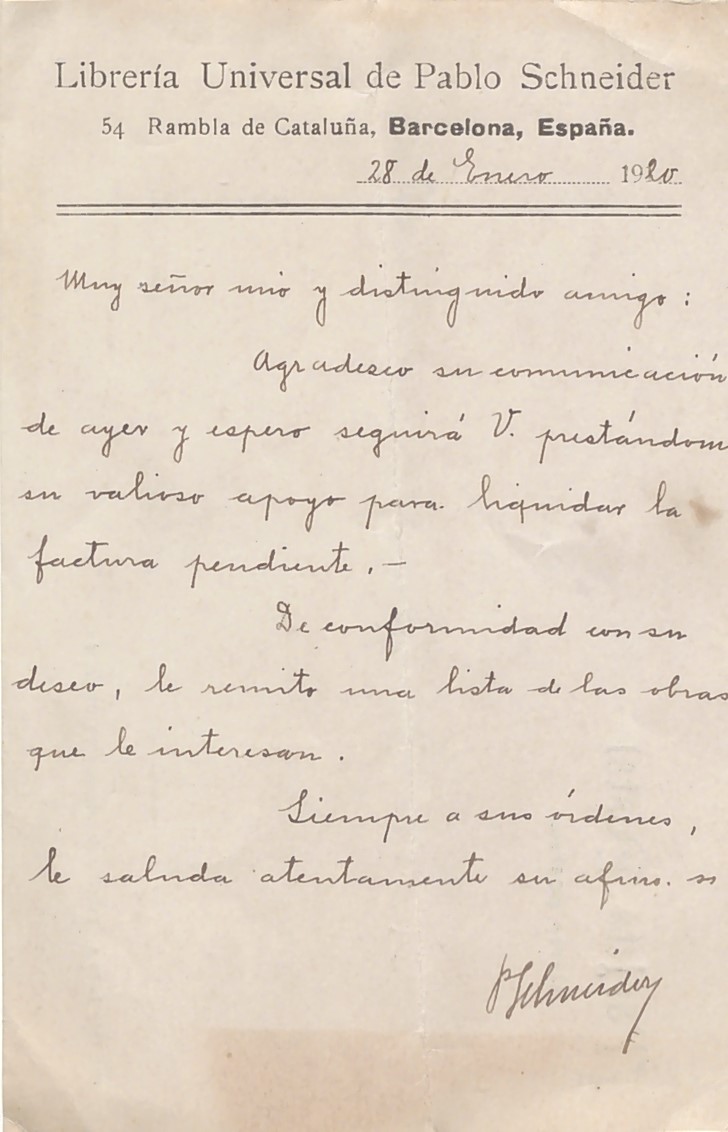 Librería Universal de Pablo Schneider
54 Rambla de Cataluña, Barcelona, España.
28 de Enero 1920
Muy señor mio y distinguido amigo:
Agradesco su comunicación
de ayer y espero seguirá V. prestándom
su valioso apoyo para liquidar la
factura pendiente. —
De conformidad con su
deseo, le remito una lista de las obras
que le interesan.
Siempre a sus órdenes,
le saluda atentamente su afmo.
PSchneider